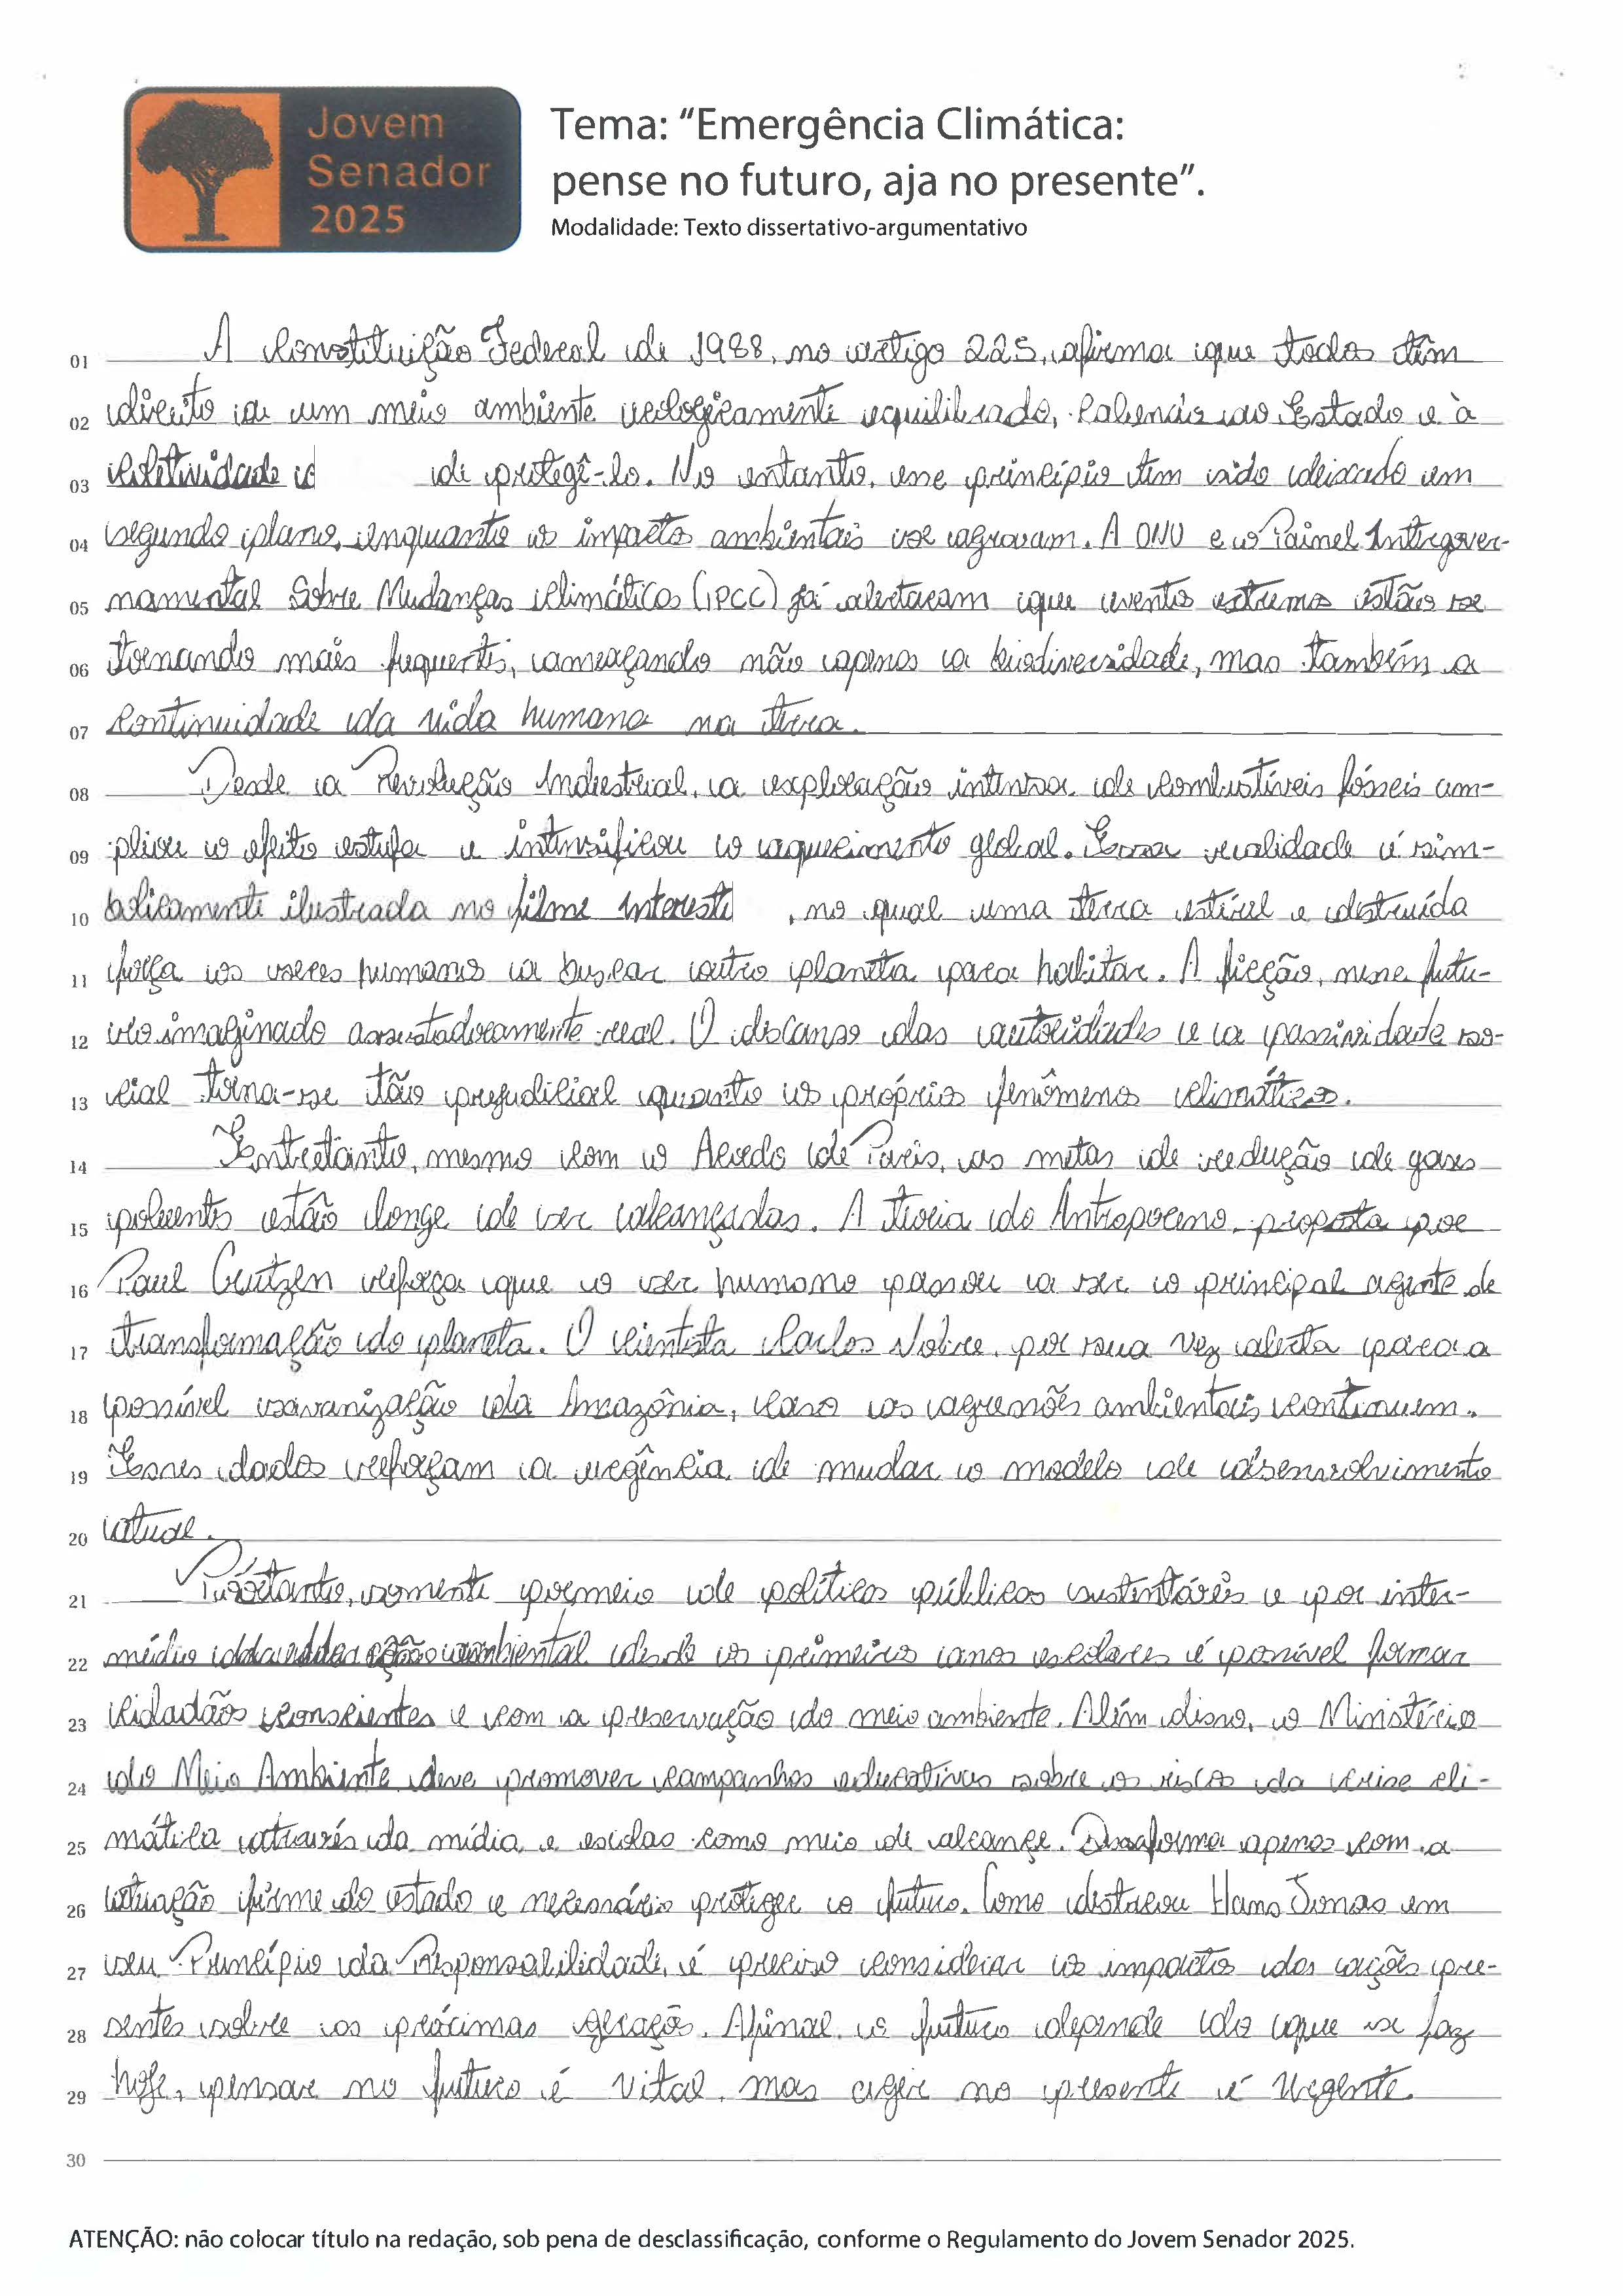 Jovem
Senador
2025
Tema: “Emergência Climática:
pense no futuro, aja no presente”.
Modalidade: Texto dissertativo-argumentativo
01 A Constituição Federal de 1988, no artigo 225, afirma que todos têm
02 direito a um meio ambiente ecologicamente equilibrado, cabendo ao Estado e à
03 coletividade de protegê-lo. No entanto, esse princípio tem sido deixado em
04 segundo plano, enquanto os impactos ambientais se agravam. A ONU e o Painel Intergover-
05 namental Sobre Mudanças climáticas (IPCC) já alertaram que eventos extremos estão se
06 tornando mais frequentes, ameaçando não apenas a biodiversidade, mas também a
07 continuidade da vida humana na terra.
08 Desde a Revolução Industrial, a exploração intensa de combustíveis fósseis am-
09 pliou o efeito estufa e intensificou o aquecimento global. Essa realidade é sim-
10 bolicamente ilustrada no filme Interest , no qual uma terra estéril e destruída
11 força os seres humanos a buscar outro planeta para habitar. A ficção, nesse futu-
12 ro imaginado assustadoramente real. O descanso das autoridades e a passividade so-
13 cial torna-se tão prejudicial quanto os próprios fenômenos climáticos.
14 Entretanto, mesmo com o Acordo de Paris, as metas de redução de gases
15 poluentes estão longe de ser alcançadas. A teoria do Antropoceno, proposta por
16 Paul Crutzen reforça que o ser humano passou a ser o principal agente de
17 transformação do planeta. O cientista Carlos Nobre, por sua vez alerta para a
18 possível savanização da Amazônia, caso as agressões ambientais continuem.
19 Esses dados reforçam a urgência de mudar o modelo de desenvolvimento
20 atual.
21 Portanto, somente por meio de políticas públicas sustentáveis e por inter-
22 médio da educação ambiental desde os primeiros anos escolares é possível formar
23 cidadãos conscientes e com a preservação do meio ambiente. Além disso, o Ministério
24 do Meio Ambiente deve promover campanhas educativas sobre os riscos da crise cli-
25 mática através da mídia e escolas como meio de alcance. Dessa forma apenas com a
26 atuação firme do estado e necessário proteger o futuro. Como destacou Hans Jonas em
27 seu Princípio da Responsabilidade, é preciso considerar os impactos das ações pre-
28 sentes sobre as próximas gerações. Afinal, o futuro depende do que se faz
29 hoje, pensar no futuro é vital, mas agir no presente é urgente.
30
ATENÇÃO: não colocar título na redação, sob pena de desclassificação, conforme o Regulamento do Jovem Senador 2025.